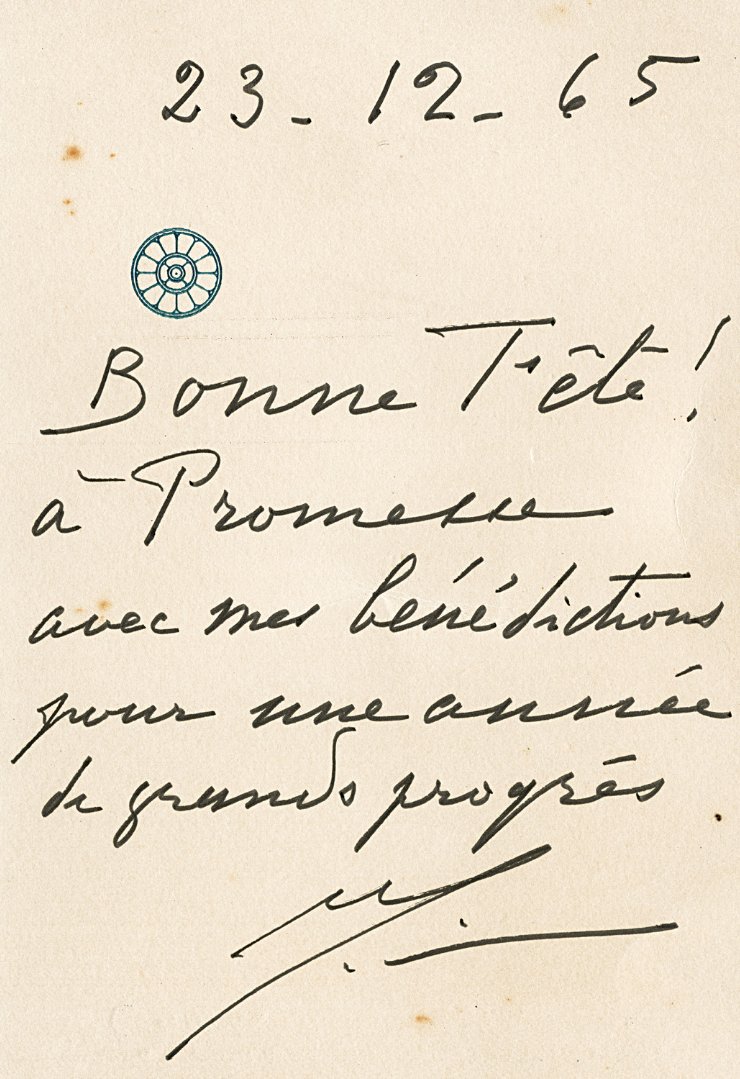 23-12-65
Bonne Fête!
à Promesse
avec mes bénédictions
pour une année
de grands progrès